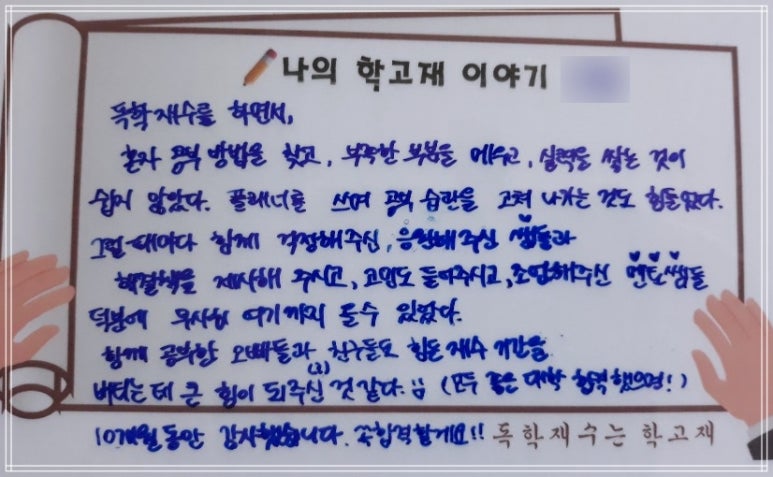 나의 학고재 이야기
독학재수를 하면서,
혼자 공부 방법을 찾고, 부족한 부분을 메우고, 실력을 쌓는 것이
쉽지 않았다. 플래너를 쓰며 공부 습관을 고쳐 나가는 것도 힘들었다.
그럴 때마다 함께 걱정해주신, 응원해주신 쌤들과
해결책을 제시해 주시고, 고민도 들어주시고, 조언해주신 멘토쌤들
덕분에 무사히 여기까지 올 수 있었다.
함께 공부한 오빠들과 친구들도 힘든 재수 기간을
버티는데 큰 힘이 되주신 것 같다. (모두 좋은 대학 합격했으면!)
10개월동안 감사했습니다. 꼭합격할게요!! 독학재수는 학고재